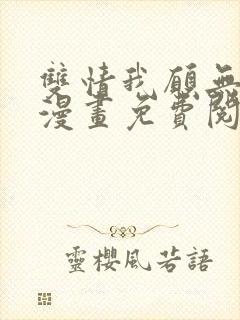 雙情我願無
漫畫免費閱
靈櫻風若語